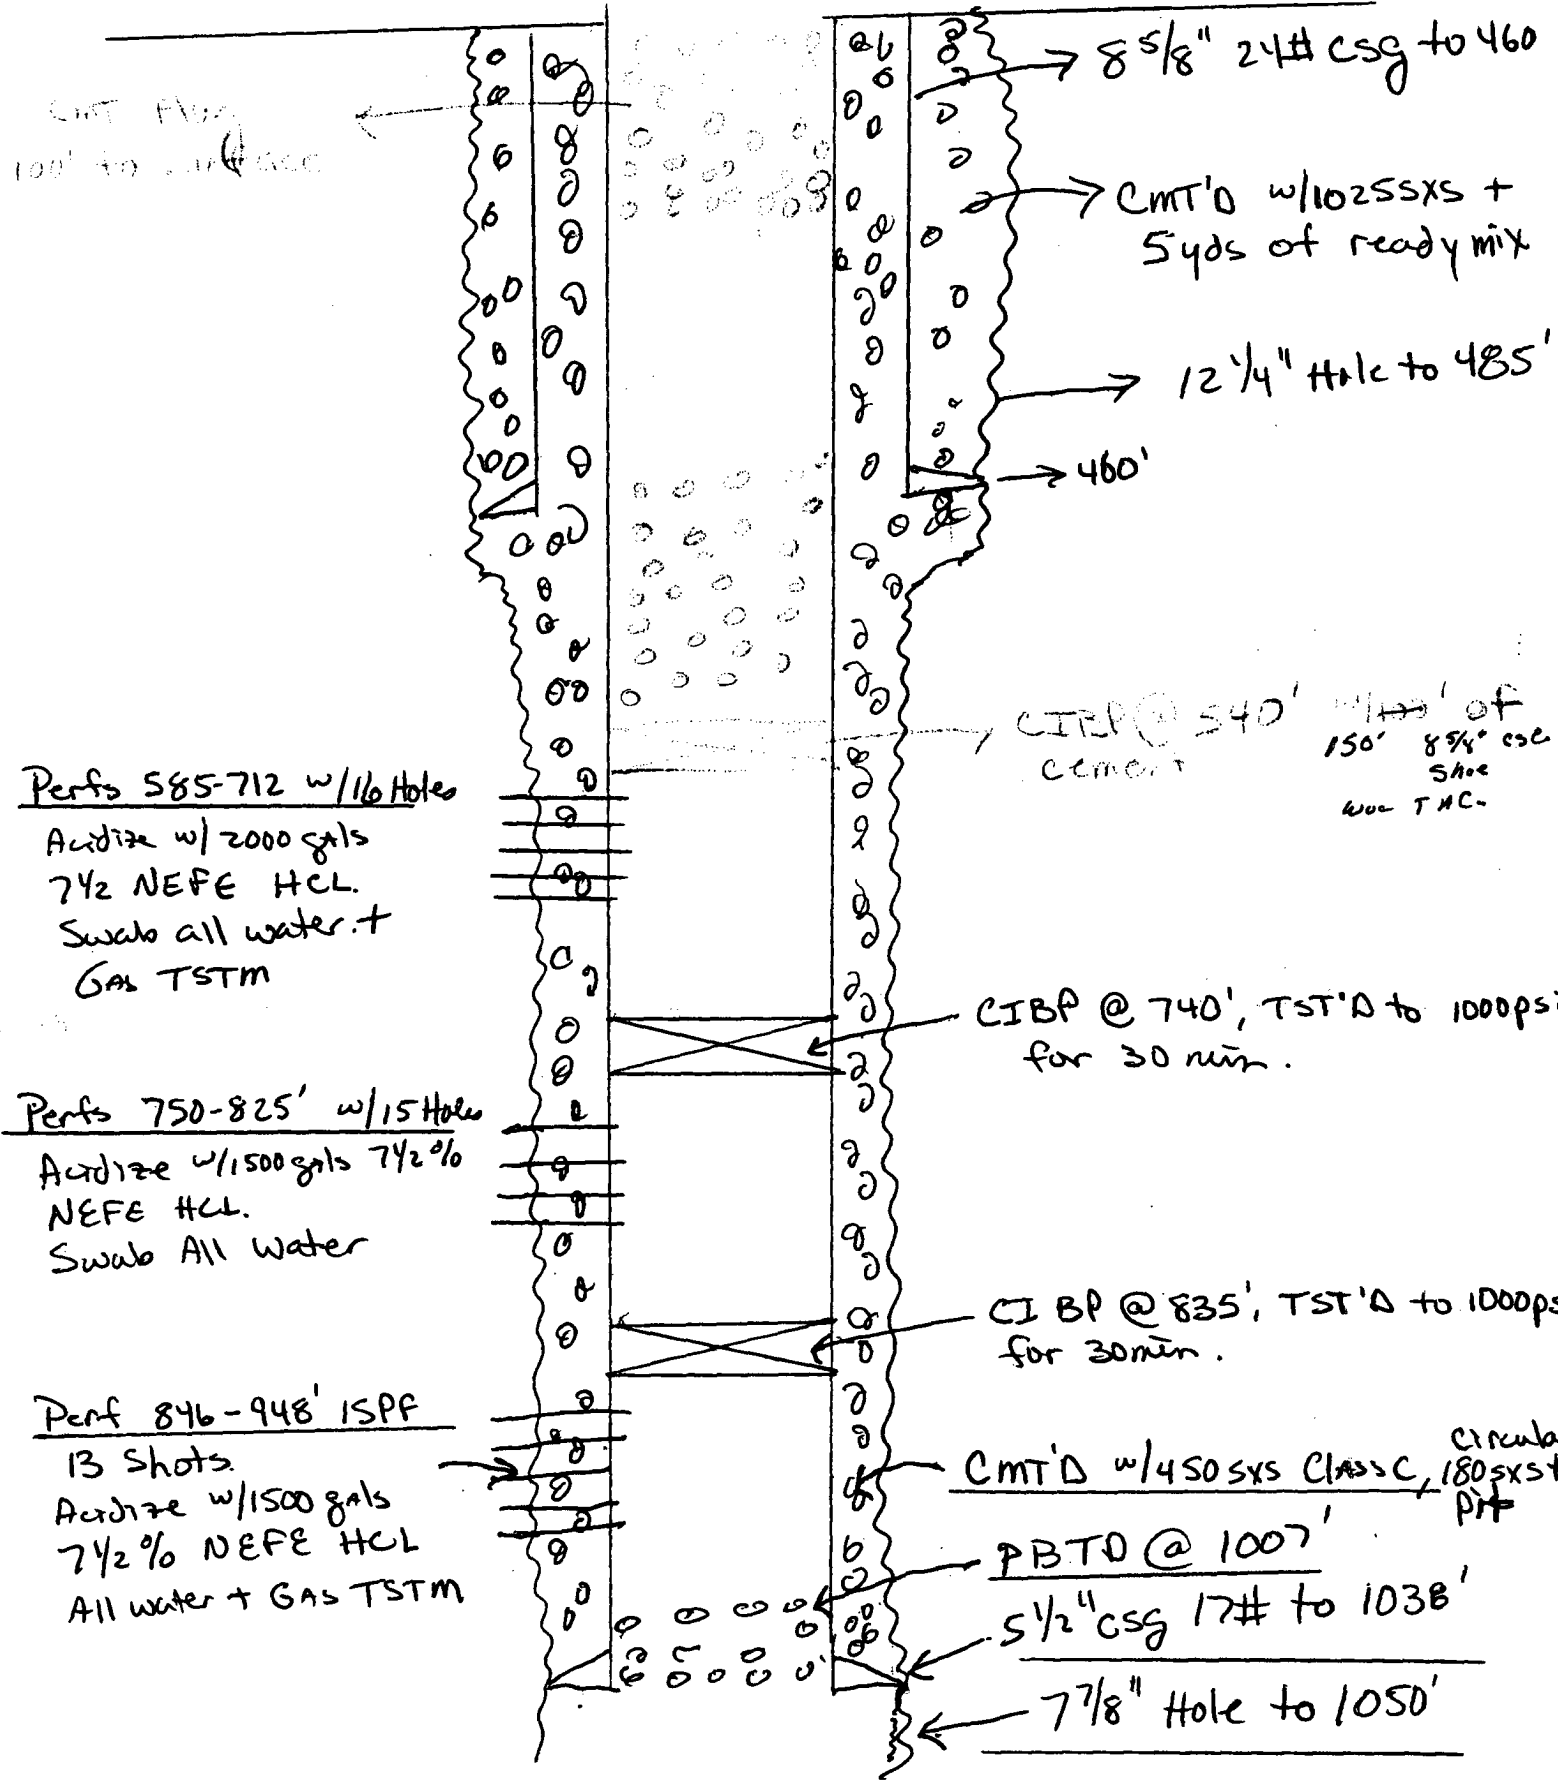 8 5/8" 24# csg to 460
CMT Plug
100' to surface
CMT'D w/1025 SXS +
5 yds of ready mix
12 1/4" Hole to 485'
460'
CIBP @ 540' w/ 100' of
cement
150' 8 5/8" csg
Shoe
WOC TAG
Perfs 585-712 w/16 Holes
Acidize w/ 2000 gals
7 1/2 NEFE HCL.
Swab all water +
GAS TSTM
CIBP @ 740', TST'D to 1000psi
for 30 min.
Perfs 750-825' w/15 Holes
Acidize w/1500 gals 7 1/2 %
NEFE HCL.
Swab All Water
CIBP @ 835', TST'D to 1000ps
for 30 min.
Perf 846-948' 1SPF
13 Shots.
Acidize w/1500 gals
7 1/2 % NEFE HCL
All water + GAS TSTM
CMT'D w/450 sxs CLASS C, Circula
180 sxs t
pit
PBTD @ 1007'
5 1/2" csg 17# to 1038'
7 7/8" Hole to 1050'